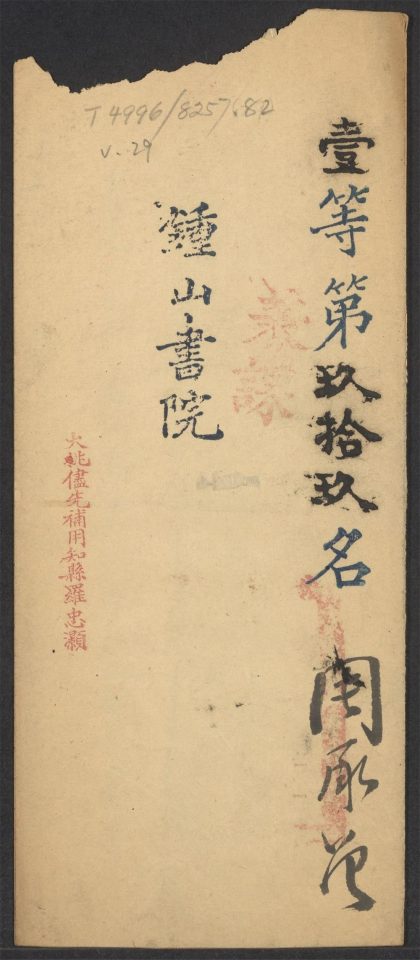 T 4996/8257.82
v. 29
壹等第玖拾玖名
課
鍾山書院
大挑儘先補用知縣羅忠